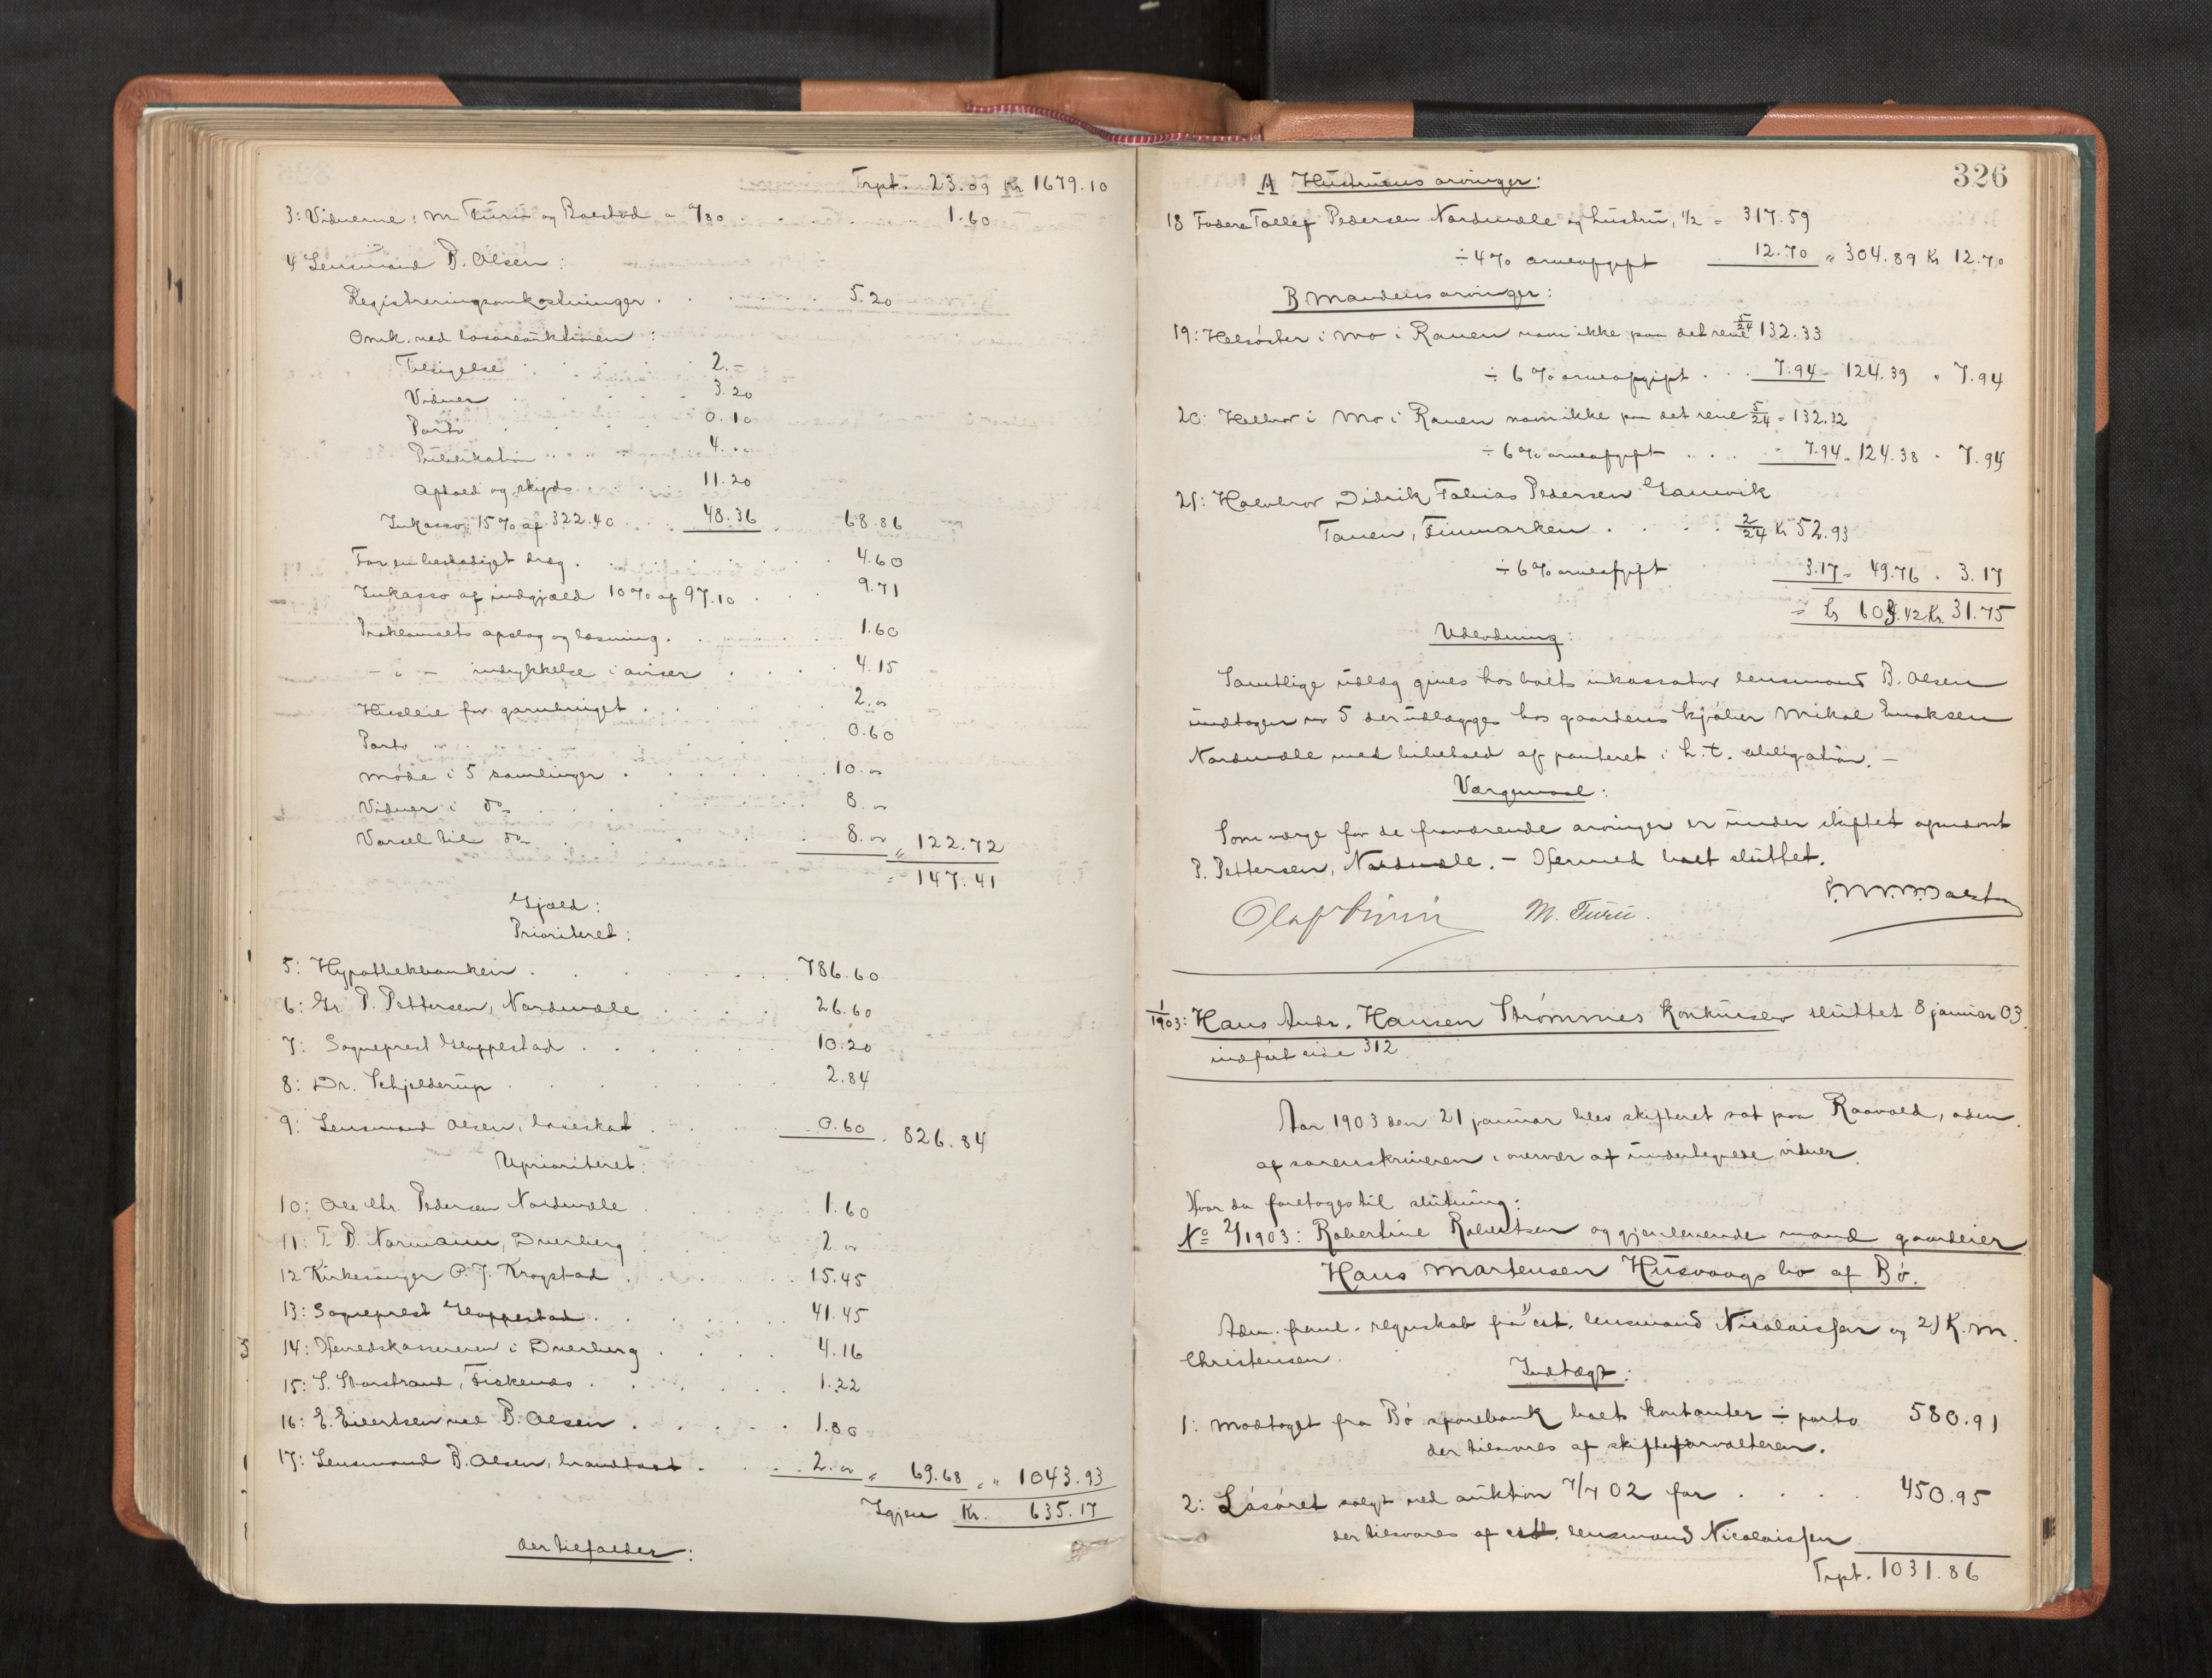 Trpt. 23.09 Kr 1679.10
3: Vidnerne: M. Turi og Rolstad a 780 . . . 1.60
4 Lensmand B. Olsen:
Registreringsomkostninger . . . 5.20
Omk. ved løsøreauktionen:
Tilsigelse . . . 2.-
Vidner . . . 3.20
Porto . . . 0.10
Publikation . . . 4. "
Ophold og skyds . . . 11.20
Inkasso: 15% af 322.40 . . . 48.36 . 68.86
For en beskadiget dreg . . . 4.60
Inkasso af indgjæld 10% af 97.10 . . . 9.71
Proklamaets opslag og læsning . . . 1.60
- " - indrykkelse i aviser . . . 4.15
Husleie for garnbruget . . . 2. "
Porto . . . 0.60
Møde i 5 samlinger . . . 10. "
Vidner i do . . . 8. "
Varsel til do . . . 8. " " 122.72
= 147.41
Gjæld:
Prioriteret:
5: Hypothekbanken . . . 786.60
6: Gr. P. Pettersen, Nordmæle . . . 26.60
7: Sogneprest Gloppestad . . . 10.20
8: Dr. Schjelderup . . . 2.84
9: Lensmand Olsen, løseskat . . . 0.60 . 826.84
Uprioriteret:
10: Ole Chr. Pedersen Nordmæle . . . 1.60
11: T. D. Normann, Dverberg . . . 2. "
12 Kirkesanger O. J. Krogstad . . . 15.45
13: Sogneprest Gloppestad . . . 41.45
14: Herredskassereren i Dverberg . . . 4.16
15: S. Storstrand, Fiskenes . . . 1.22
16: E. Eilertsen ved B. Olsen . . . 1.80
17: Lensmand B. Olsen, brandtakst . . . 2. " " 69.68 = " 1043.93
Igjen Kr. 635.17
der tilfalder:
326
A Hustruens arvinger:
18 Fader Tollef Pedersen Nordmæle og hustru, 1/2 = 317.59
÷ 4% arveafgift 12.70 " 304.89 Kr 12.70
B Mandens arvinger:
19: Helsøster i Mo i Ranen navn ikke paa det rene 5/24 132.33
÷ 6% arveafgift . . . 7.94 = 124.39 " 7.94
20: Helbror i Mo i Ranen navn ikke paa det rene 5/24 = 132.32
÷ 6% arveafgift . . . 7.94 = 124.38 " 7.94
21: Halvbror Didrik Tobias Pedersen Gamvik
Tanen, Finmarken . . . 2/24 Kr 52.93
÷ 6% arveafgift 3.17 = 49.76 " 3.17
= Kr 603.42 Kr. 31.75
Udlodning:
Samtlige udlæg gives hos boets inkassator lensmand B. Olsen
undtagen nr 5 der udlægges hos gaardens kjøber Mikal Enoksen
Nordmæle med bibehold af panteret i h.t. obligation. -
Værgemaal:
Som værge for de fraværende arvinger er under skiftet opnævnt
P. Pettersen, Nordmæle. - Hermed boet sluttet.
M. Turi.
1/1903: Hans Andr. Hansen Strømmes konkursbo sluttet 8 januar 03.
indført side 312
Aar 1903 den 21 januar blev skifteret sat paa Raavold, adm.
af sorenskriveren i overvær af undertegnede vidner.
Hvor da foretoges til slutning:
No 2/1903: Robertine Robertsen og gjenlevende mand gaardeier
Hans Martensen Husvaags bo af Bø.
Adm. freml. regnskab fra 1) cst. lensmand Nicolaissen og 2) K. M.
Christensen.
Indtægt:
1: Modtaget fra Bø sparebank boets kontanter ÷ porto 580.91
der tilsvares af skifteforvalteren.
2: Løsøret solgt ved auktion 7/7 02 for . . . 450.95
der tilsvares af cst. lensmand Nicolaissen
Trpt. 1031.86